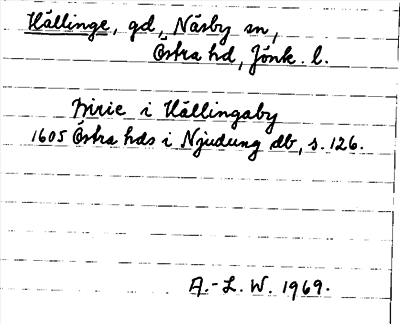 Hällinge, gd, Näsby sn,
Östra hd, Jönk. l.
i Hällingaby
1605 Östra hds i Njudung db, s. 126.
A.-L. W. 1969.